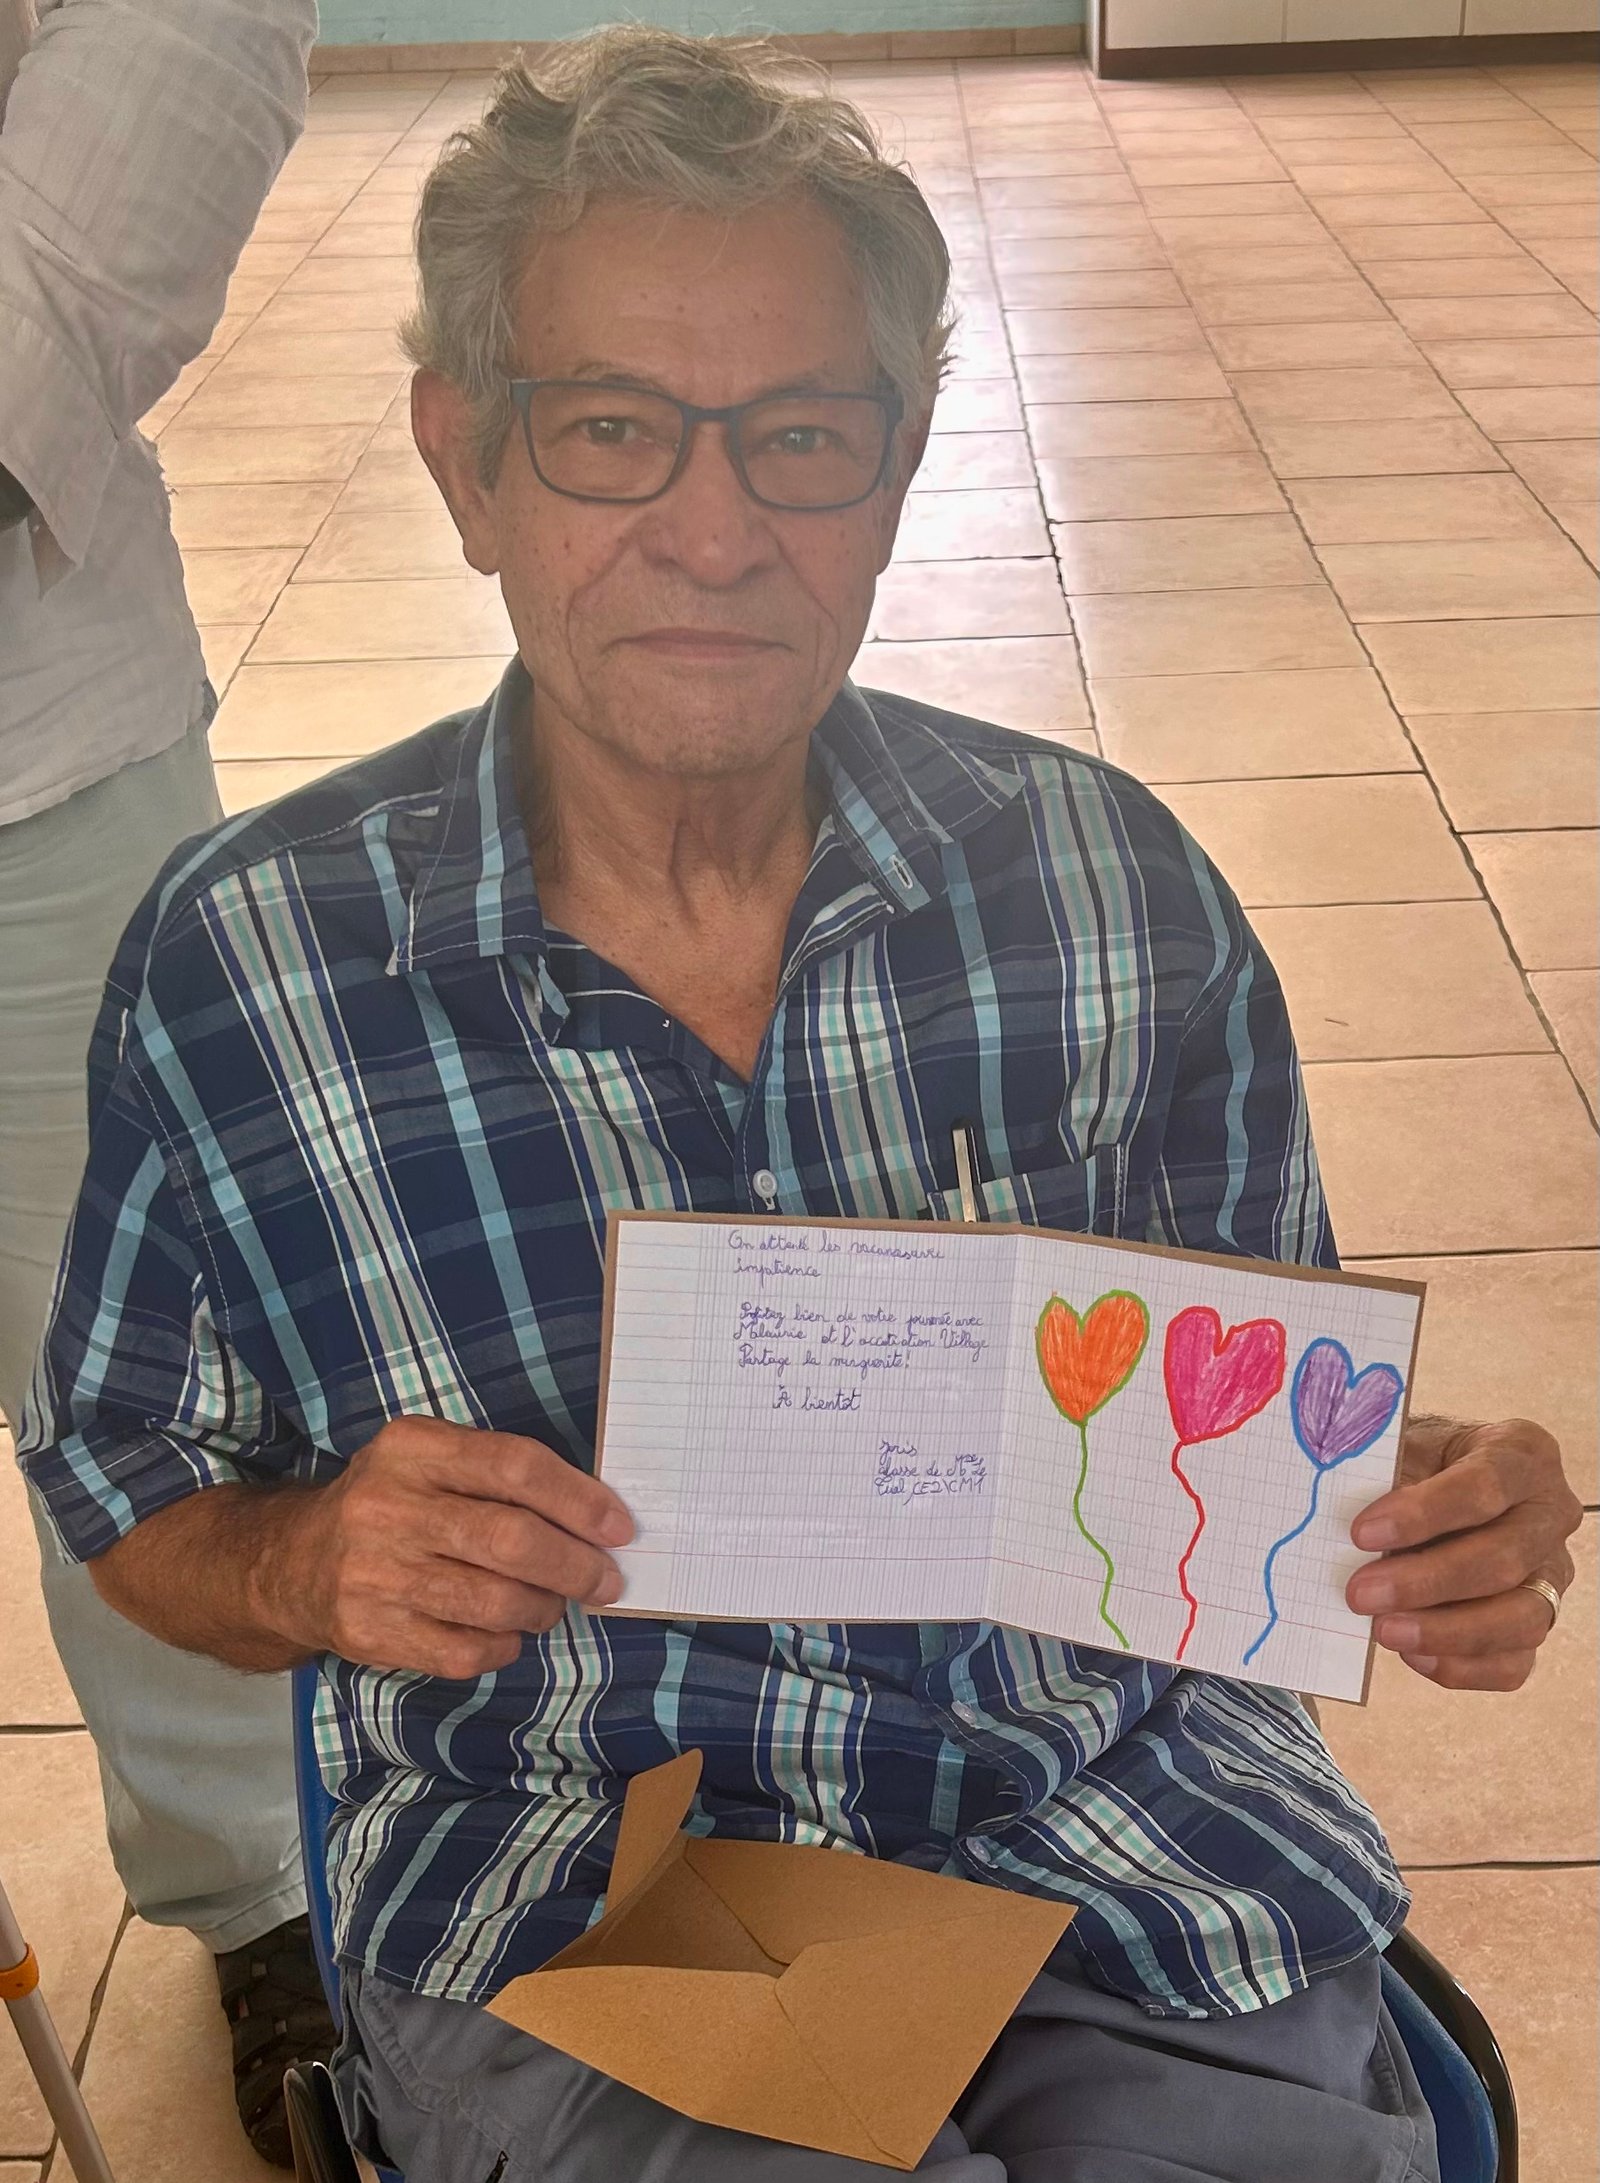 On attend les vacances avec
impatience
Profitez bien de votre journée avec
Malaurie et l'accotiation Village
Partage la marguerite!
À bientôt
Joris
classe de
CE2\CM1